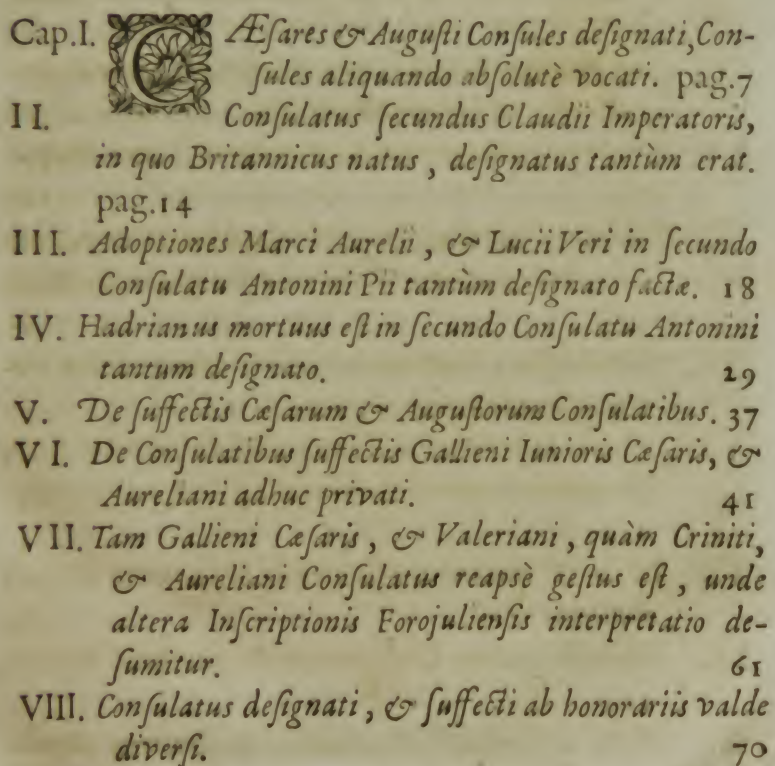 Cap.I. CÆſares & Auguſti Conſules deſignati, Con-
ſules aliquando abſolutè vocati. pag.7
II. Conſulatus ſecundus Claudii Imperatoris,
in quo Britannicus natus, deſignatus tantùm erat.
pag.14
III. Adoptiones Marci Aurelii, & Lucii Veri in ſecundo
Conſulatu Antonini Pii tantùm deſignato factæ. 18
IV. Hadrianus mortuus eſt in ſecundo Conſulatu Antonini
tantum deſignato. 29
V. De ſuffectis Cæſarum & Auguſtorum Conſulatibus. 37
VI. De Conſulatibus ſuffectis Gallieni Iunioris Cæſaris, &
Aureliani adhuc privati. 41
VII. Tam Gallieni Cæſaris, & Valeriani, quàm Criniti,
& Aureliani Conſulatus reapsè geſtus eſt, unde
altera Inſcriptionis Forojulienſis interpretatio de-
ſumitur. 61
VIII. Conſulatus deſignati, & ſuffecti ab honorariis valde
diverſi. 70